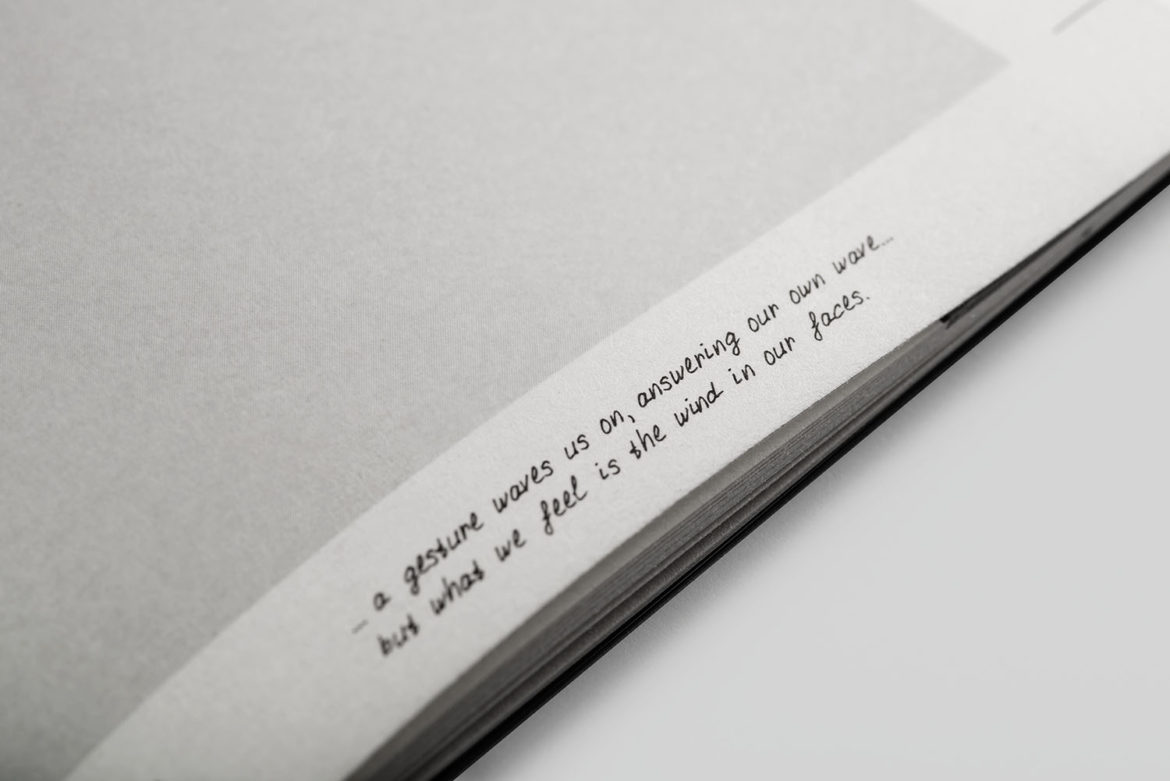 ...a gesture waves us on, answering our own wave...
but what we feel is the wind in our faces.